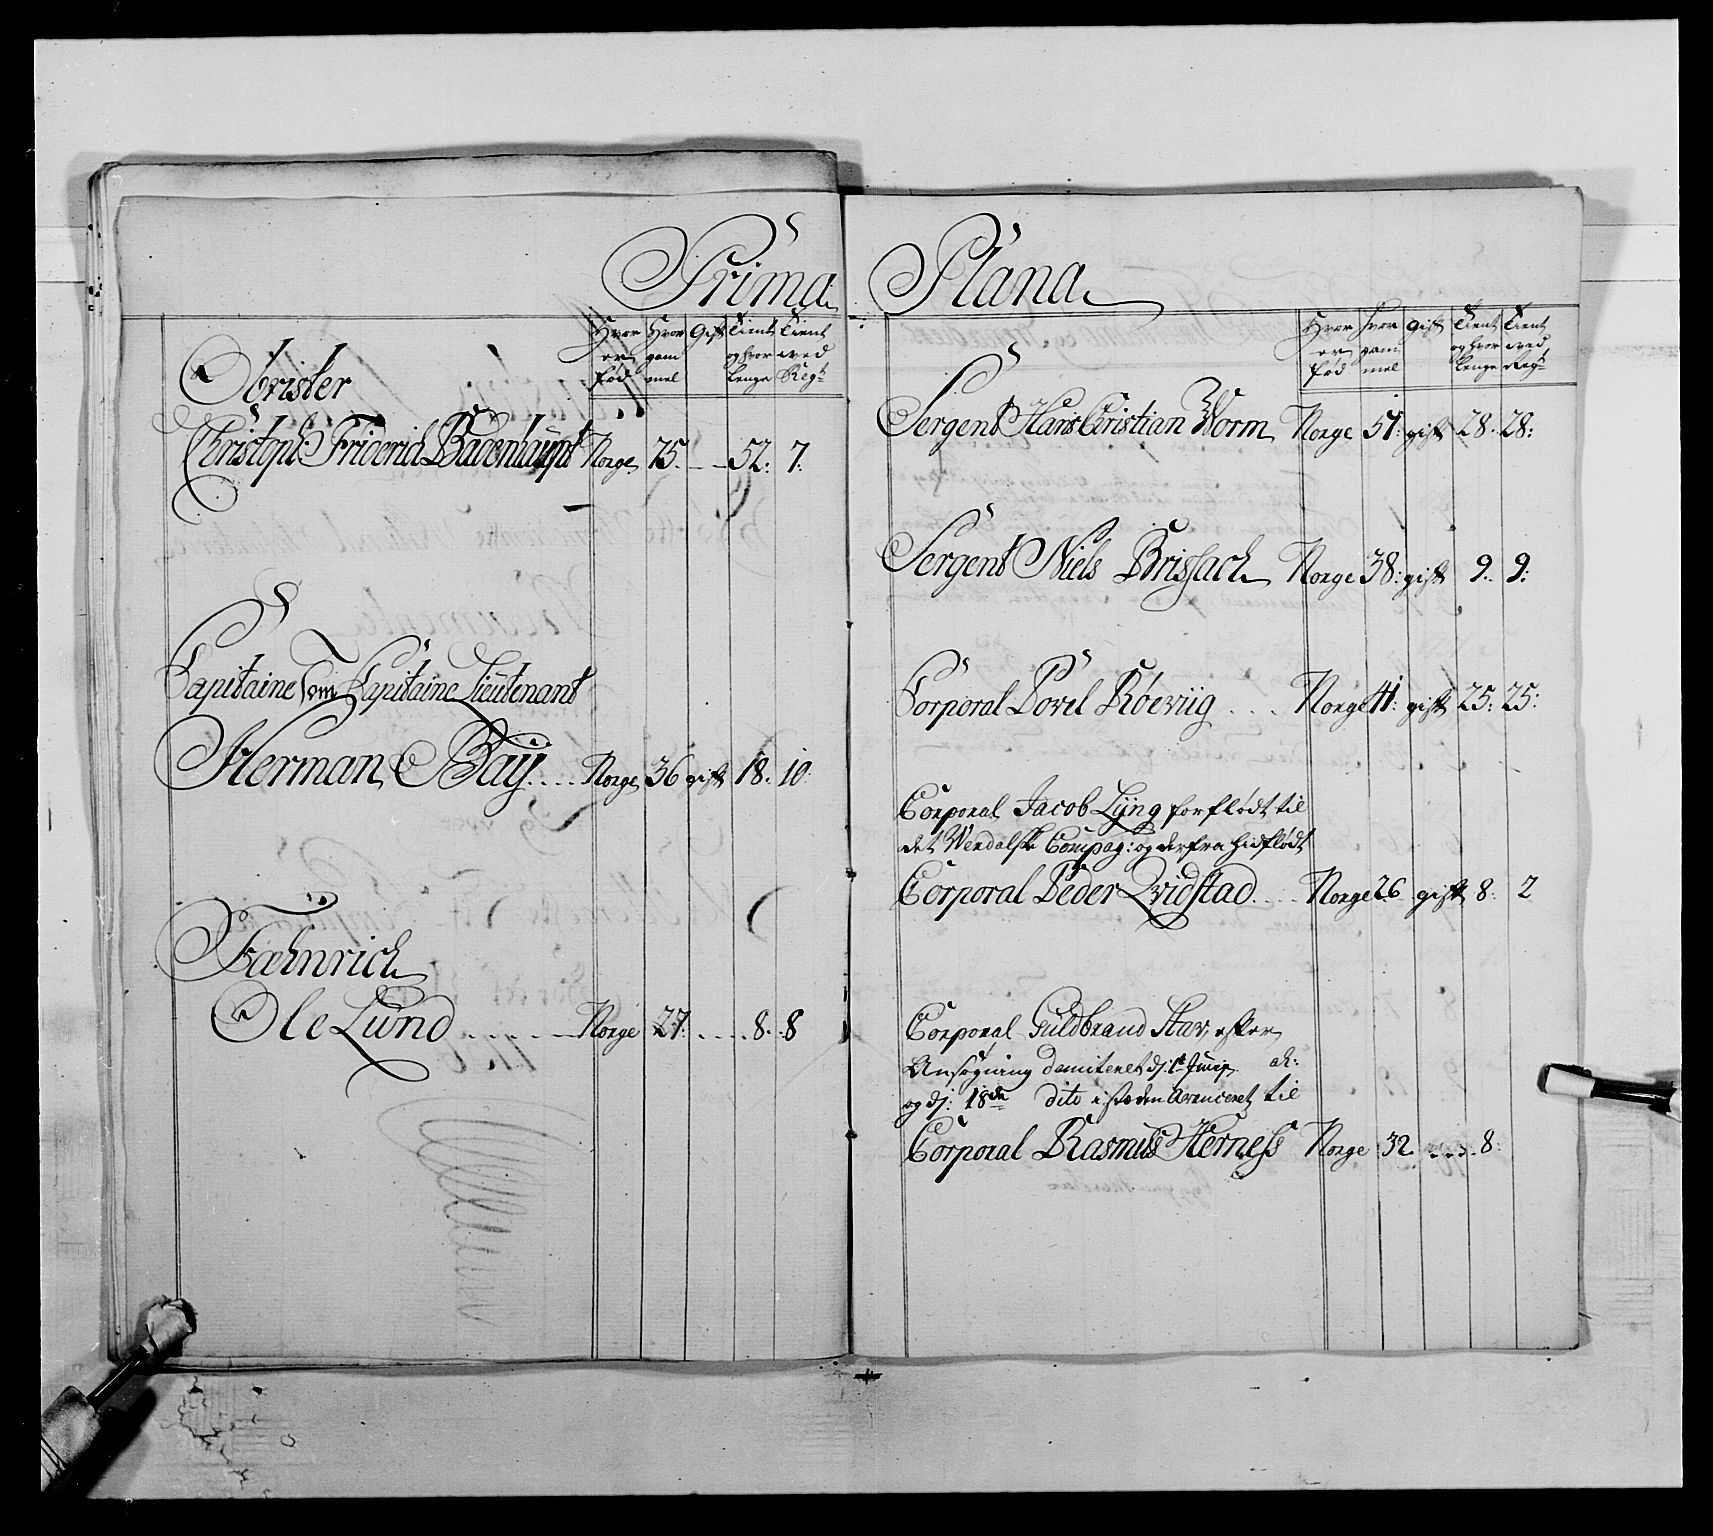 Prima Plana
Hvor er fød | Hvor gam mel | Gift | Tient og hvor lenge | Tient wed Regt
Obrister
Christoph Friderich Badenhaupt Norge 75. 52: 7:
Capitaine som Capitaine Lieutenant
Herman Bay .... Norge 36 gift 18. 10:
Fæhnrich
Ole Lund ...... Norge 27: .... 8. 8
Hvor er fød | hvor gam mel | gift | Tient og hvor lenge | Tient wed Regt
Sergent Hans Christian Worm Norge 51: gift 28. 28:
Sergent Niels Brissach Norge 38: gift 9. 9:
Corporal Povel Røeviig ... Norge 41: gift 25: 25:
Corporal Jacob Lyng forflødt til
det Werdalske Compag: og derfra hidflødt
Corporal Peder Qvidstad .... Norge 26 gift 8: 2
Corporal Guldbrand Stav, efter
Ansøgning demiteret dj: 1t Junij
og dj: 18de dito i steden Avanceret til
Corporal Rasmus Herness Norge 32. .... 8: